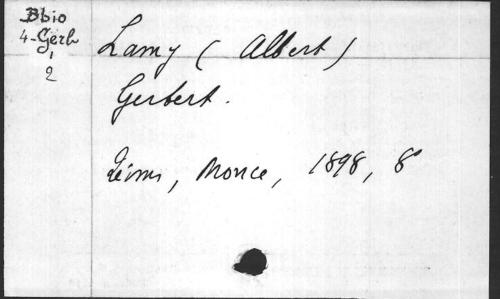 Bbio
4-Gerb
1
2
Lamy (Albert)
Gerbert.
Reims, Monce, 1898, 8°